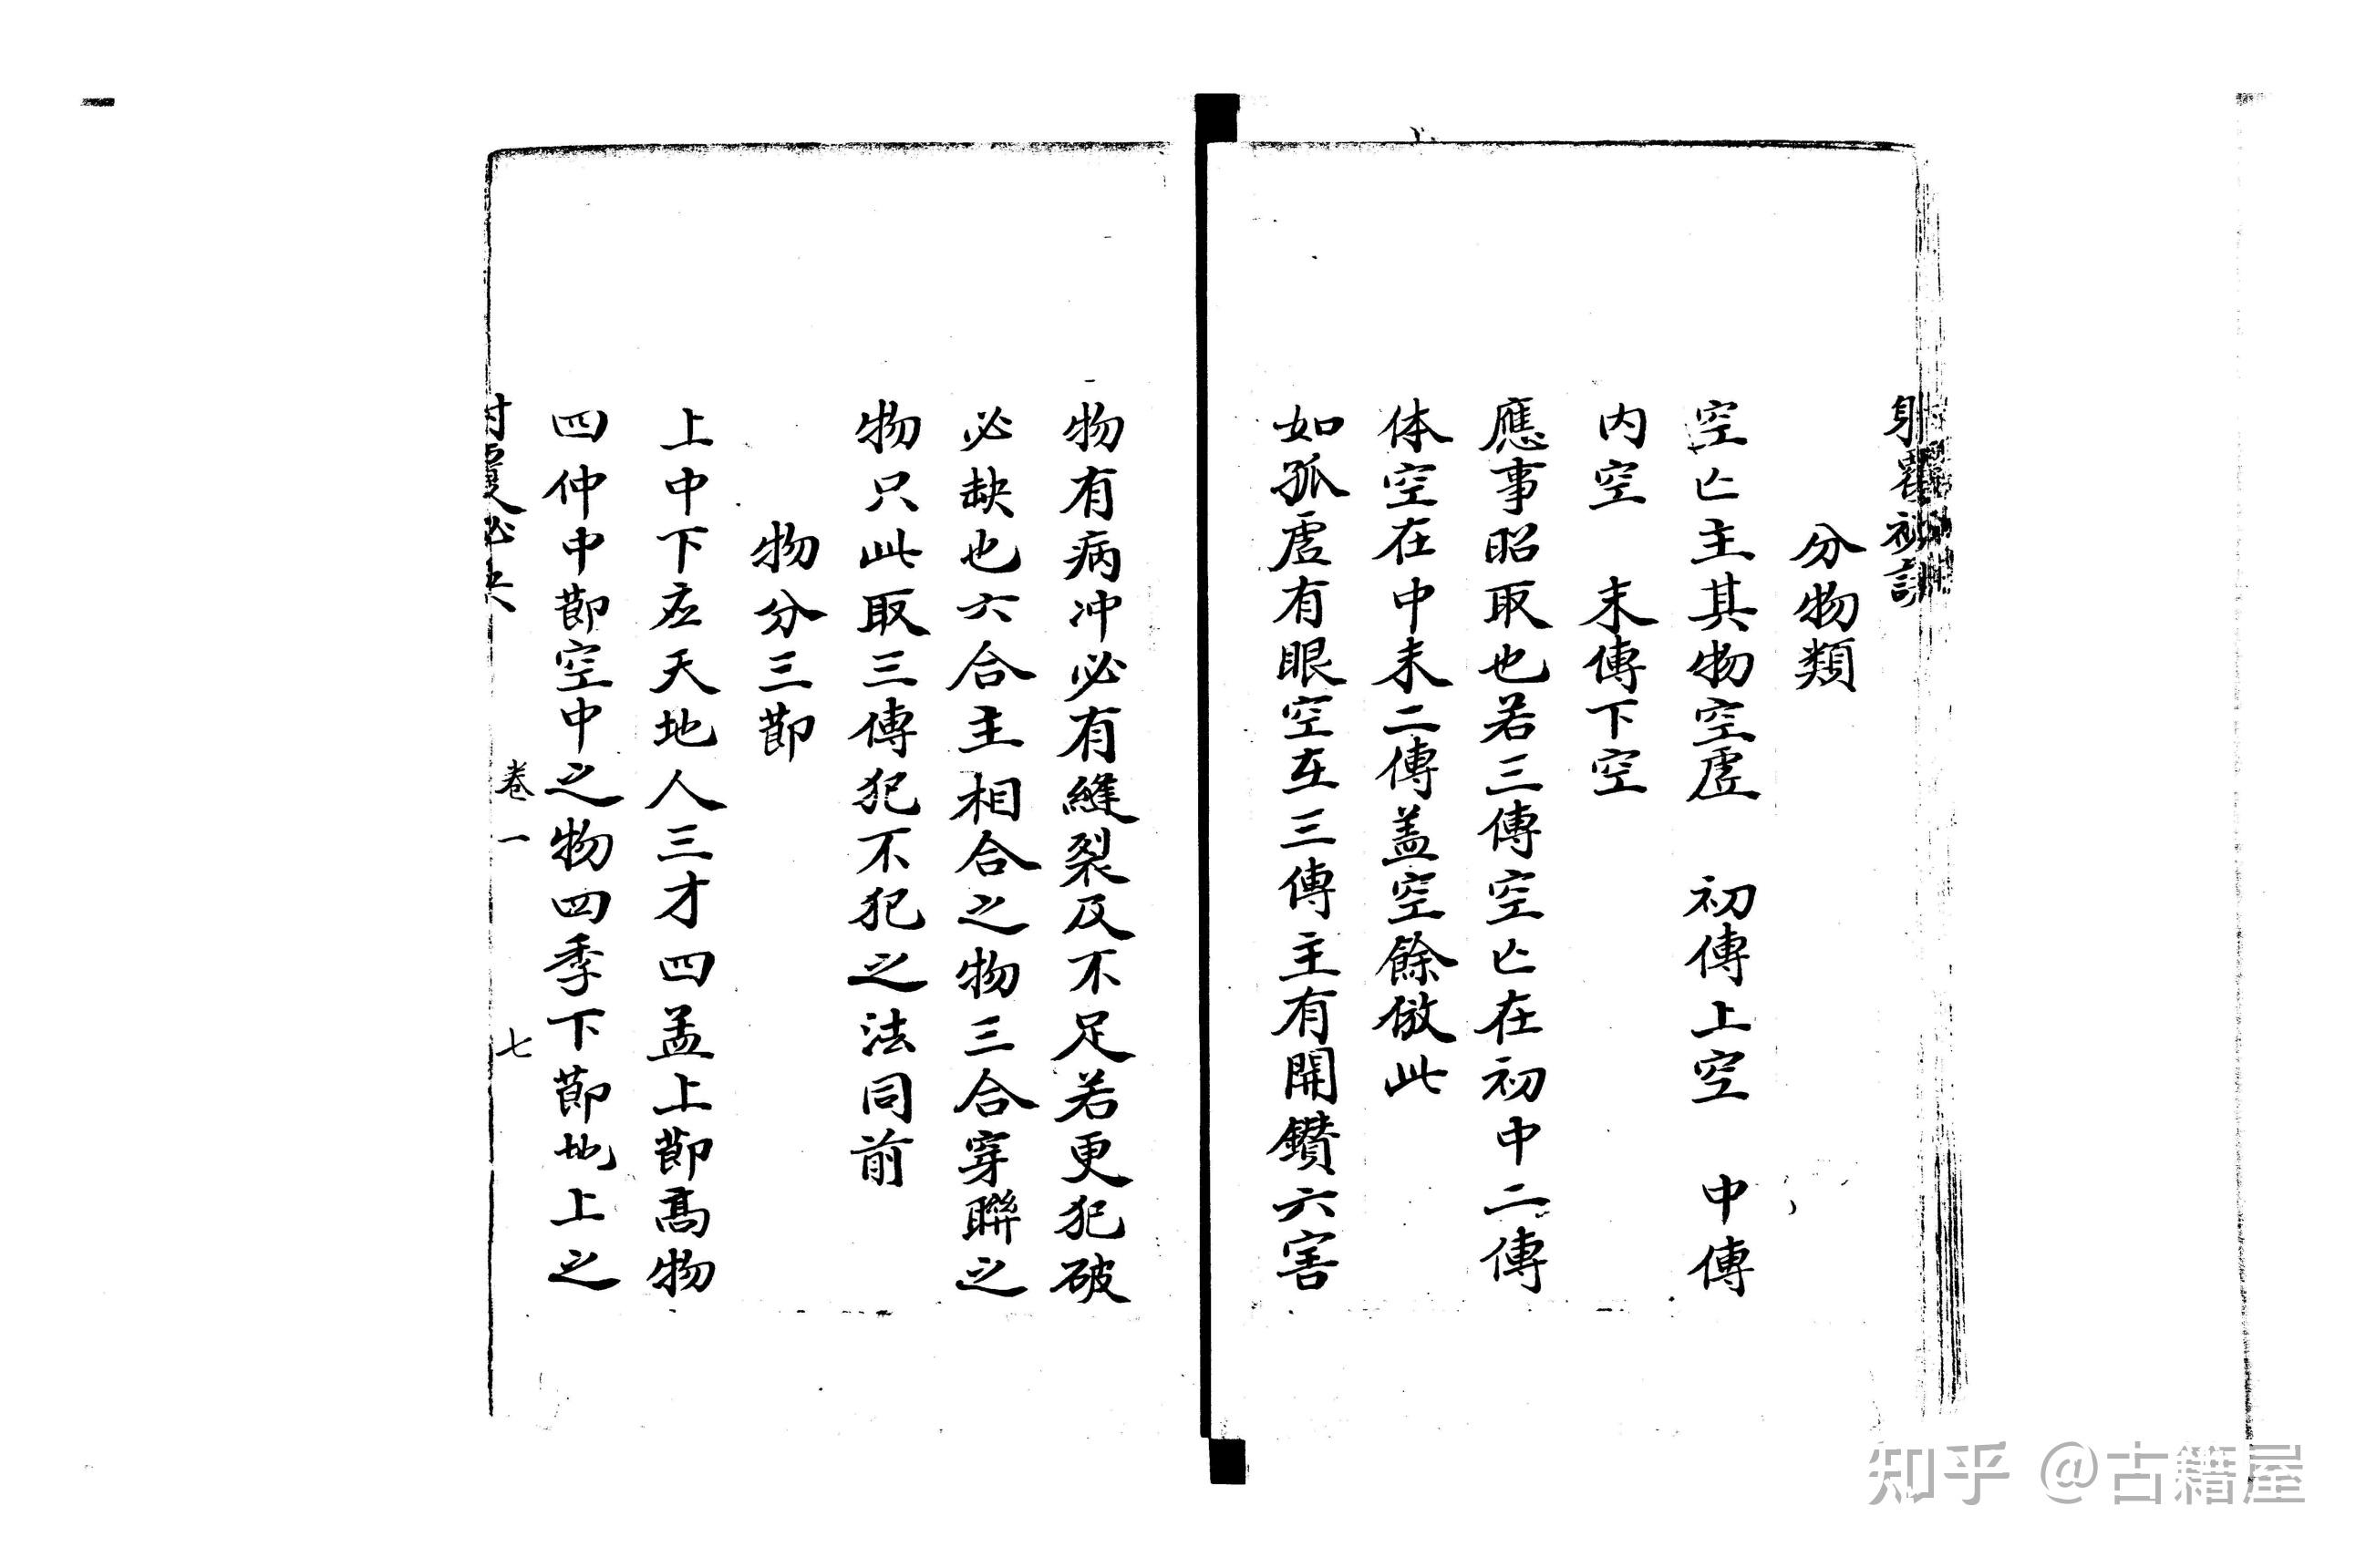 分物類
空亡主其物空虛　初傳上空　中傳
內空　末傳下空
應事昭取也若三傳空亡在初中二傳
体空在中末二傳盖空餘倣此
如孤虛有眼空在三傳主有開鑽六害
物有病冲必有縫裂及不足若更犯破
必缺也六合主相合之物三合穿聯之
物只此取三傳犯不犯之法同前
物分三節
上中下应天地人三才四孟上節高物
四仲中節空中之物四季下節地上之
射覆必决　卷一　七
知乎 @古籍屋